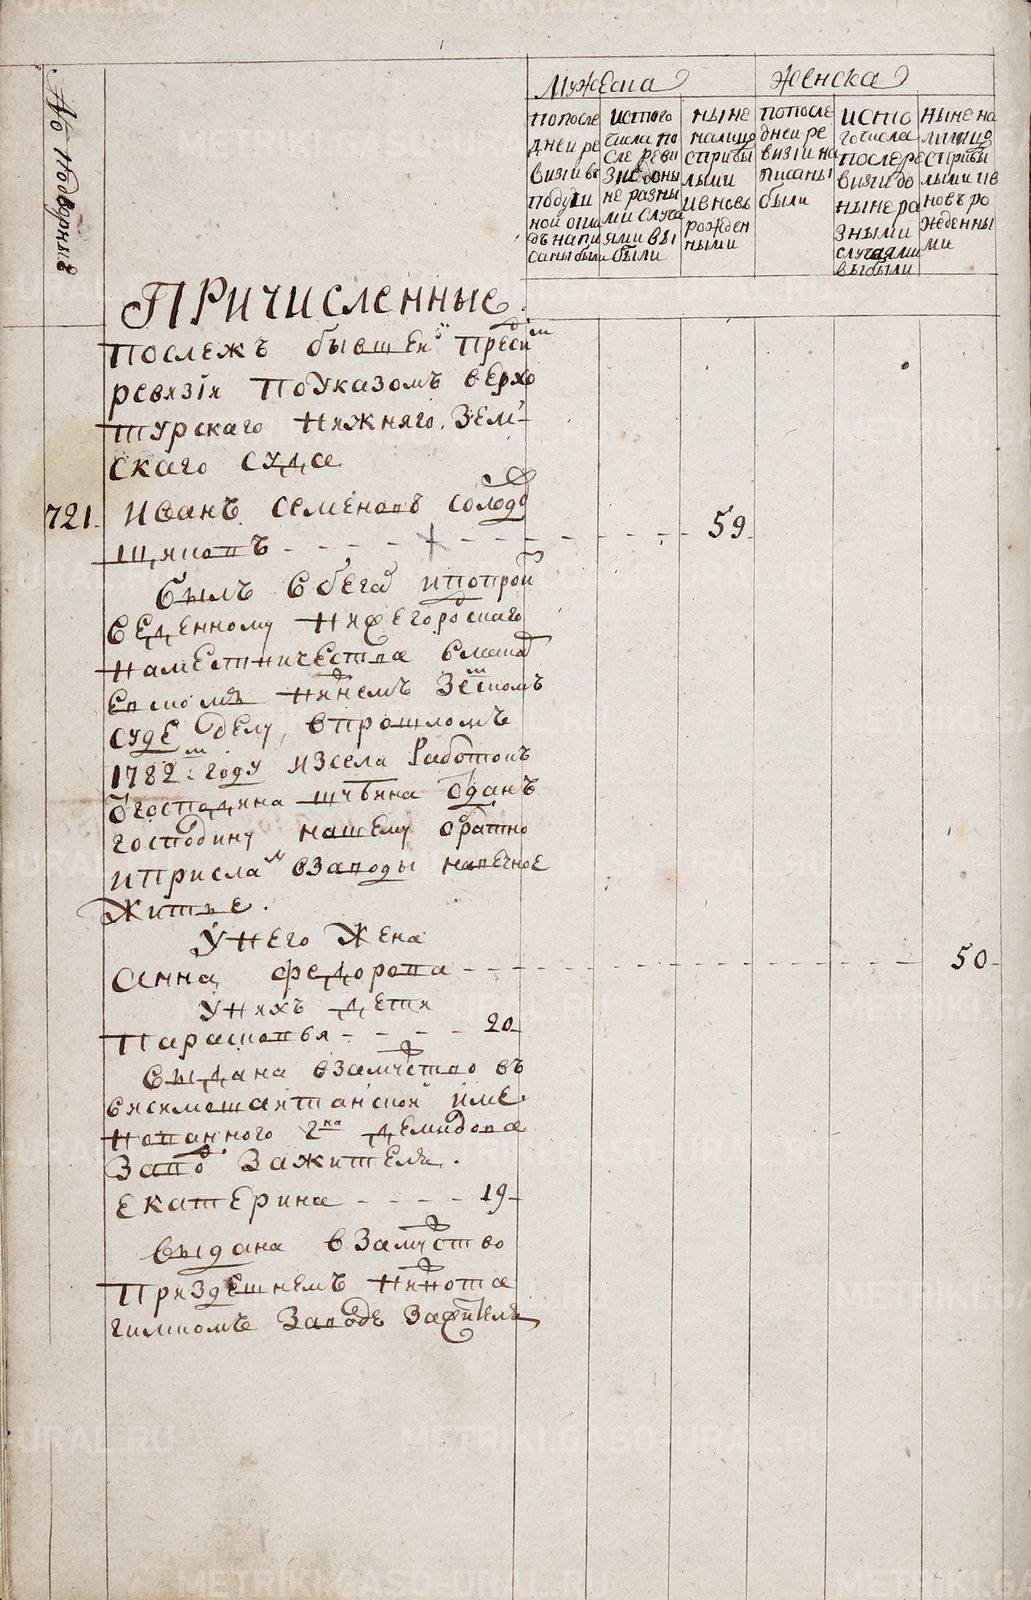 № подворныя
Мужеска
Женска
попосле
дней ре
визии въ
подуш
ной окла
дъ напи
саны были
истого
числа по
сле реви
зии доны
не разны
ми случа
ями вы
были
ныне
налицо
сприбы
лыми
ивновь
рожден
ными
попосле
дней ре
визiи на
писаны
были
исто
гочисла
послере
визiи до
ныне ра
зными
случаями
выбыли
ныне на
лицо
сприбы
лыми ив
новь ро
жденны
ми
Причисленные
послежъ бывшей пред
ревизiи поуказомъ верхо
турскаго нижняго зем
скаго суда
721. Иванъ семеновъ солодо
щиковъ 59
былъ вбега ипопрои
веденному нижегородскаго
наместничества вмака
евскомъ нижнемъ земскомъ
суде делу, впрошломъ
1782м году изсела Работокъ
отгосподина щ
господину нашему обратно
иприсланъ взаводы навечное
житье.
Унего жена
Анна федорова 50
Унихъ дети
Парасковья 20
выдана взамужство въ
висимошайтанской име
нованного г-на демидова
заводъ зажителя.
екатерина 19
выдана взамужство
приздешнемъ нижнота
гилскомъ заводе зажителя